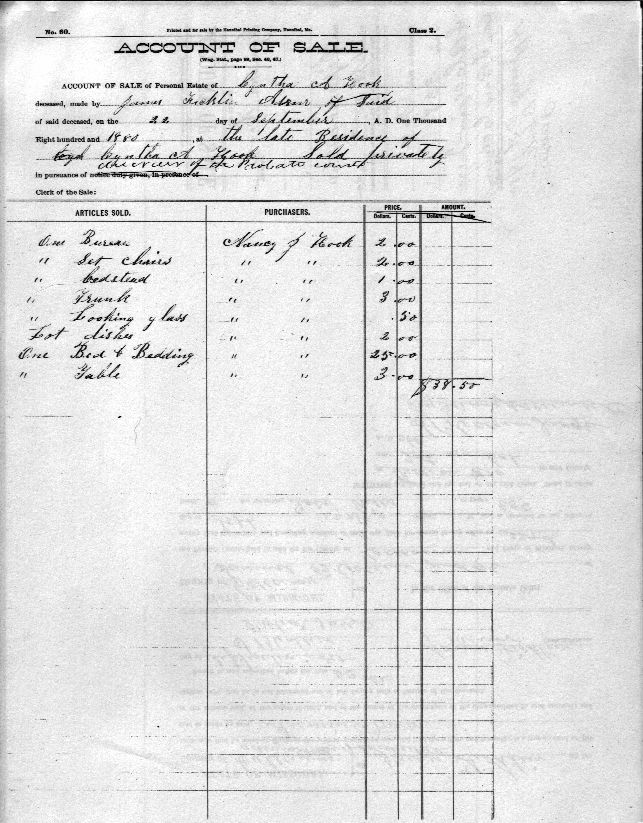 No. 60. Printed and for sale by the Hannibal Printing Company, Hannibal, Mo. Class 2.
ACCOUNT OF SALE.
(Wag. Stat., page 88, Sec. 40, 47.)
ACCOUNT OF SALE of Personal Estate of Cyntha A Hook
deceased, made by James Ficklin of Said
of said deceased, on the 22 day of September, A. D. One Thousand
Eight hundred and 1880 at the late Residence of
Cyntha A Hook Sold privately
the order of the Probate court
in pursuance of notice duly given, in pursuance of
Clerk of the Sale:
ARTICLES SOLD. PURCHASERS. PRICE. AMOUNT.
Dollars. Cents. Dollars. Cents.
One Bureau Nancy J Hook 2.00
" Set chairs " " 2.00
" bedstead " " 1.00
" Trunk " " 3.00
" Looking glass " " .50
Lot dishes " " 2 00
One Bed & Bedding " " 25.00
" Table " " 3.00
$38.50